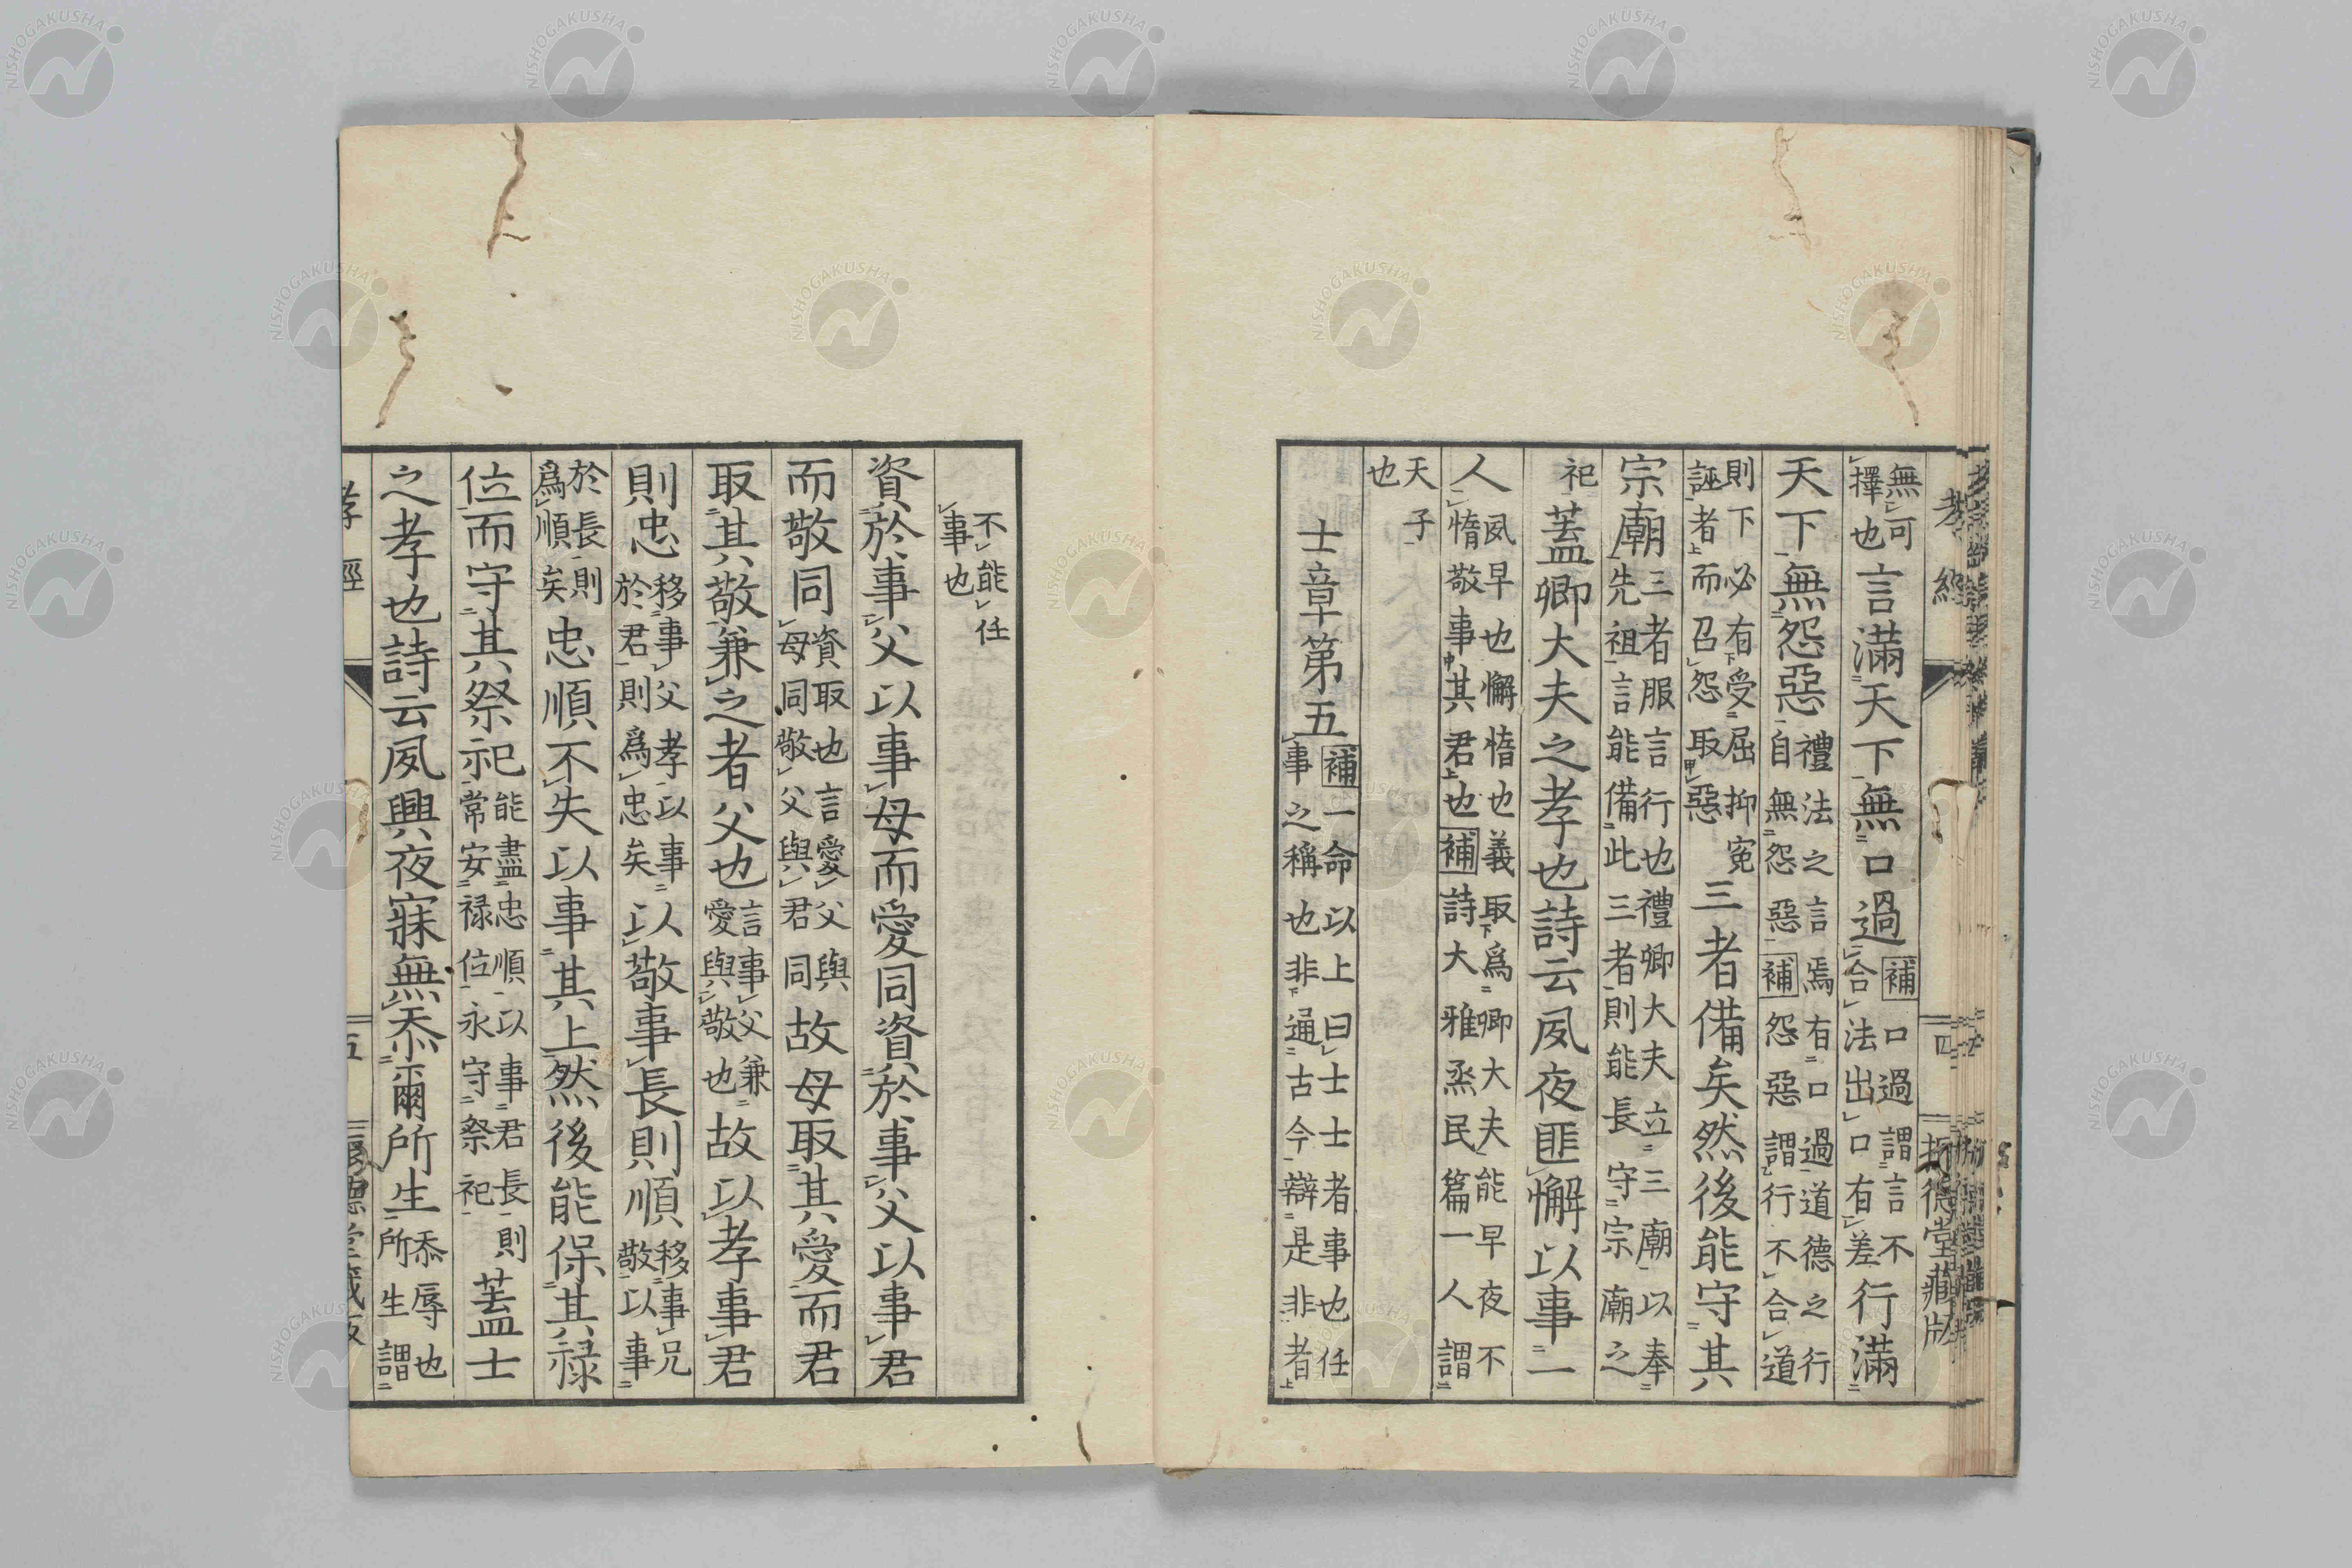 孝經 四 德堂藏版
無可擇也言滿天下無口過補口過謂言不合法出口有差行滿
天下無怨惡禮法之言焉有口過道德之行自無怨惡補怨惡謂行不合道
則下必有受屈抑冤誣者而召怨取惡三者備矣然後能守其
宗廟三者服言行也禮卿大夫立三廟以奉先祖言能備此三者則能長守宗廟之
祀蓋卿大夫之孝也詩云夙夜匪懈以事一
人夙早也懈惰也義取爲卿大夫能早夜不惰敬事其君也補詩大雅烝民篇一人謂
天子也
士章第五補一命以上曰士士者事也任事之稱也非通古今辯是非者
不能任事也
資於事父以事母而愛同資於事父以事君
而敬同資取也言愛父與母同敬父與君同故母取其愛而君
取其敬兼之者父也言事父兼愛與敬也故以孝事君
則忠移事父孝以事於君則爲忠矣以敬事長則順移事兄敬以事
於長則爲順矣忠順不失以事其上然後能保其祿
位而守其祭祀能盡忠順以事君長則常安祿位永守祭祀蓋士
之孝也詩云夙興夜寐無忝爾所生忝辱也所生謂
孝經 五 德堂藏版
NISHOGAKUSHA